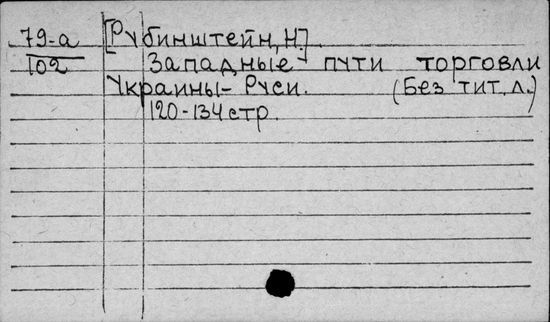 79-а [Рубинштейн, Н.]
102 Западные пути торговли
Украины-Руси. (Без тит. л.)
120-134 стр.